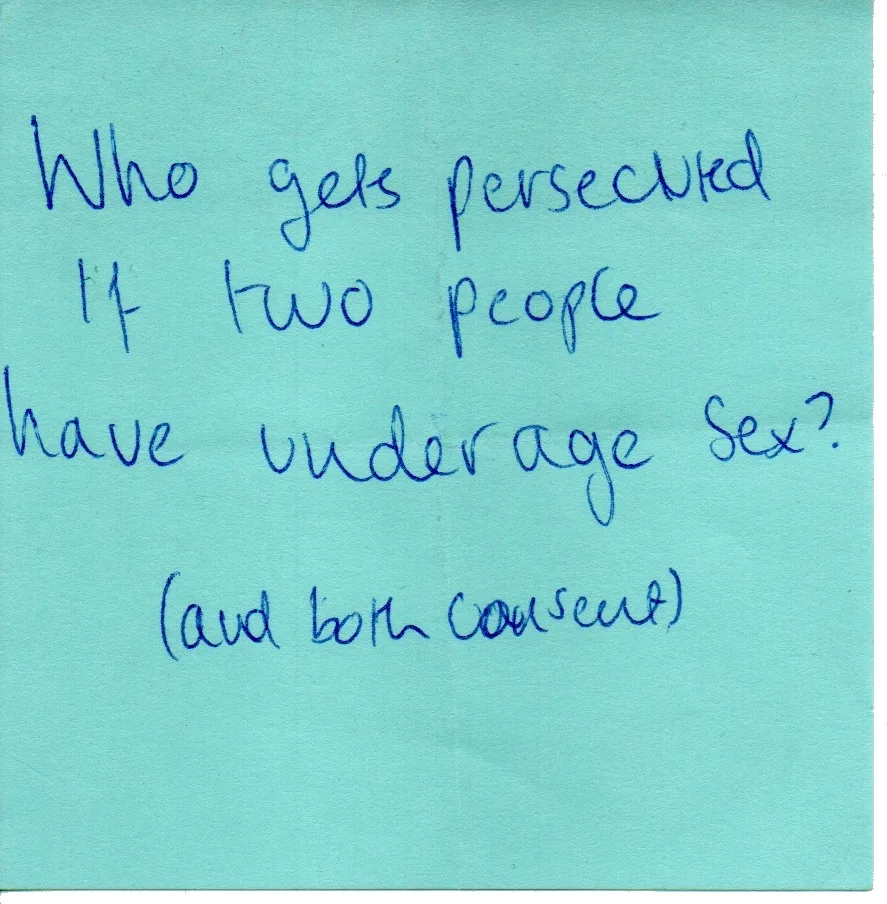 Who gets persecuted
If two people
have underage sex?
(and both consent)